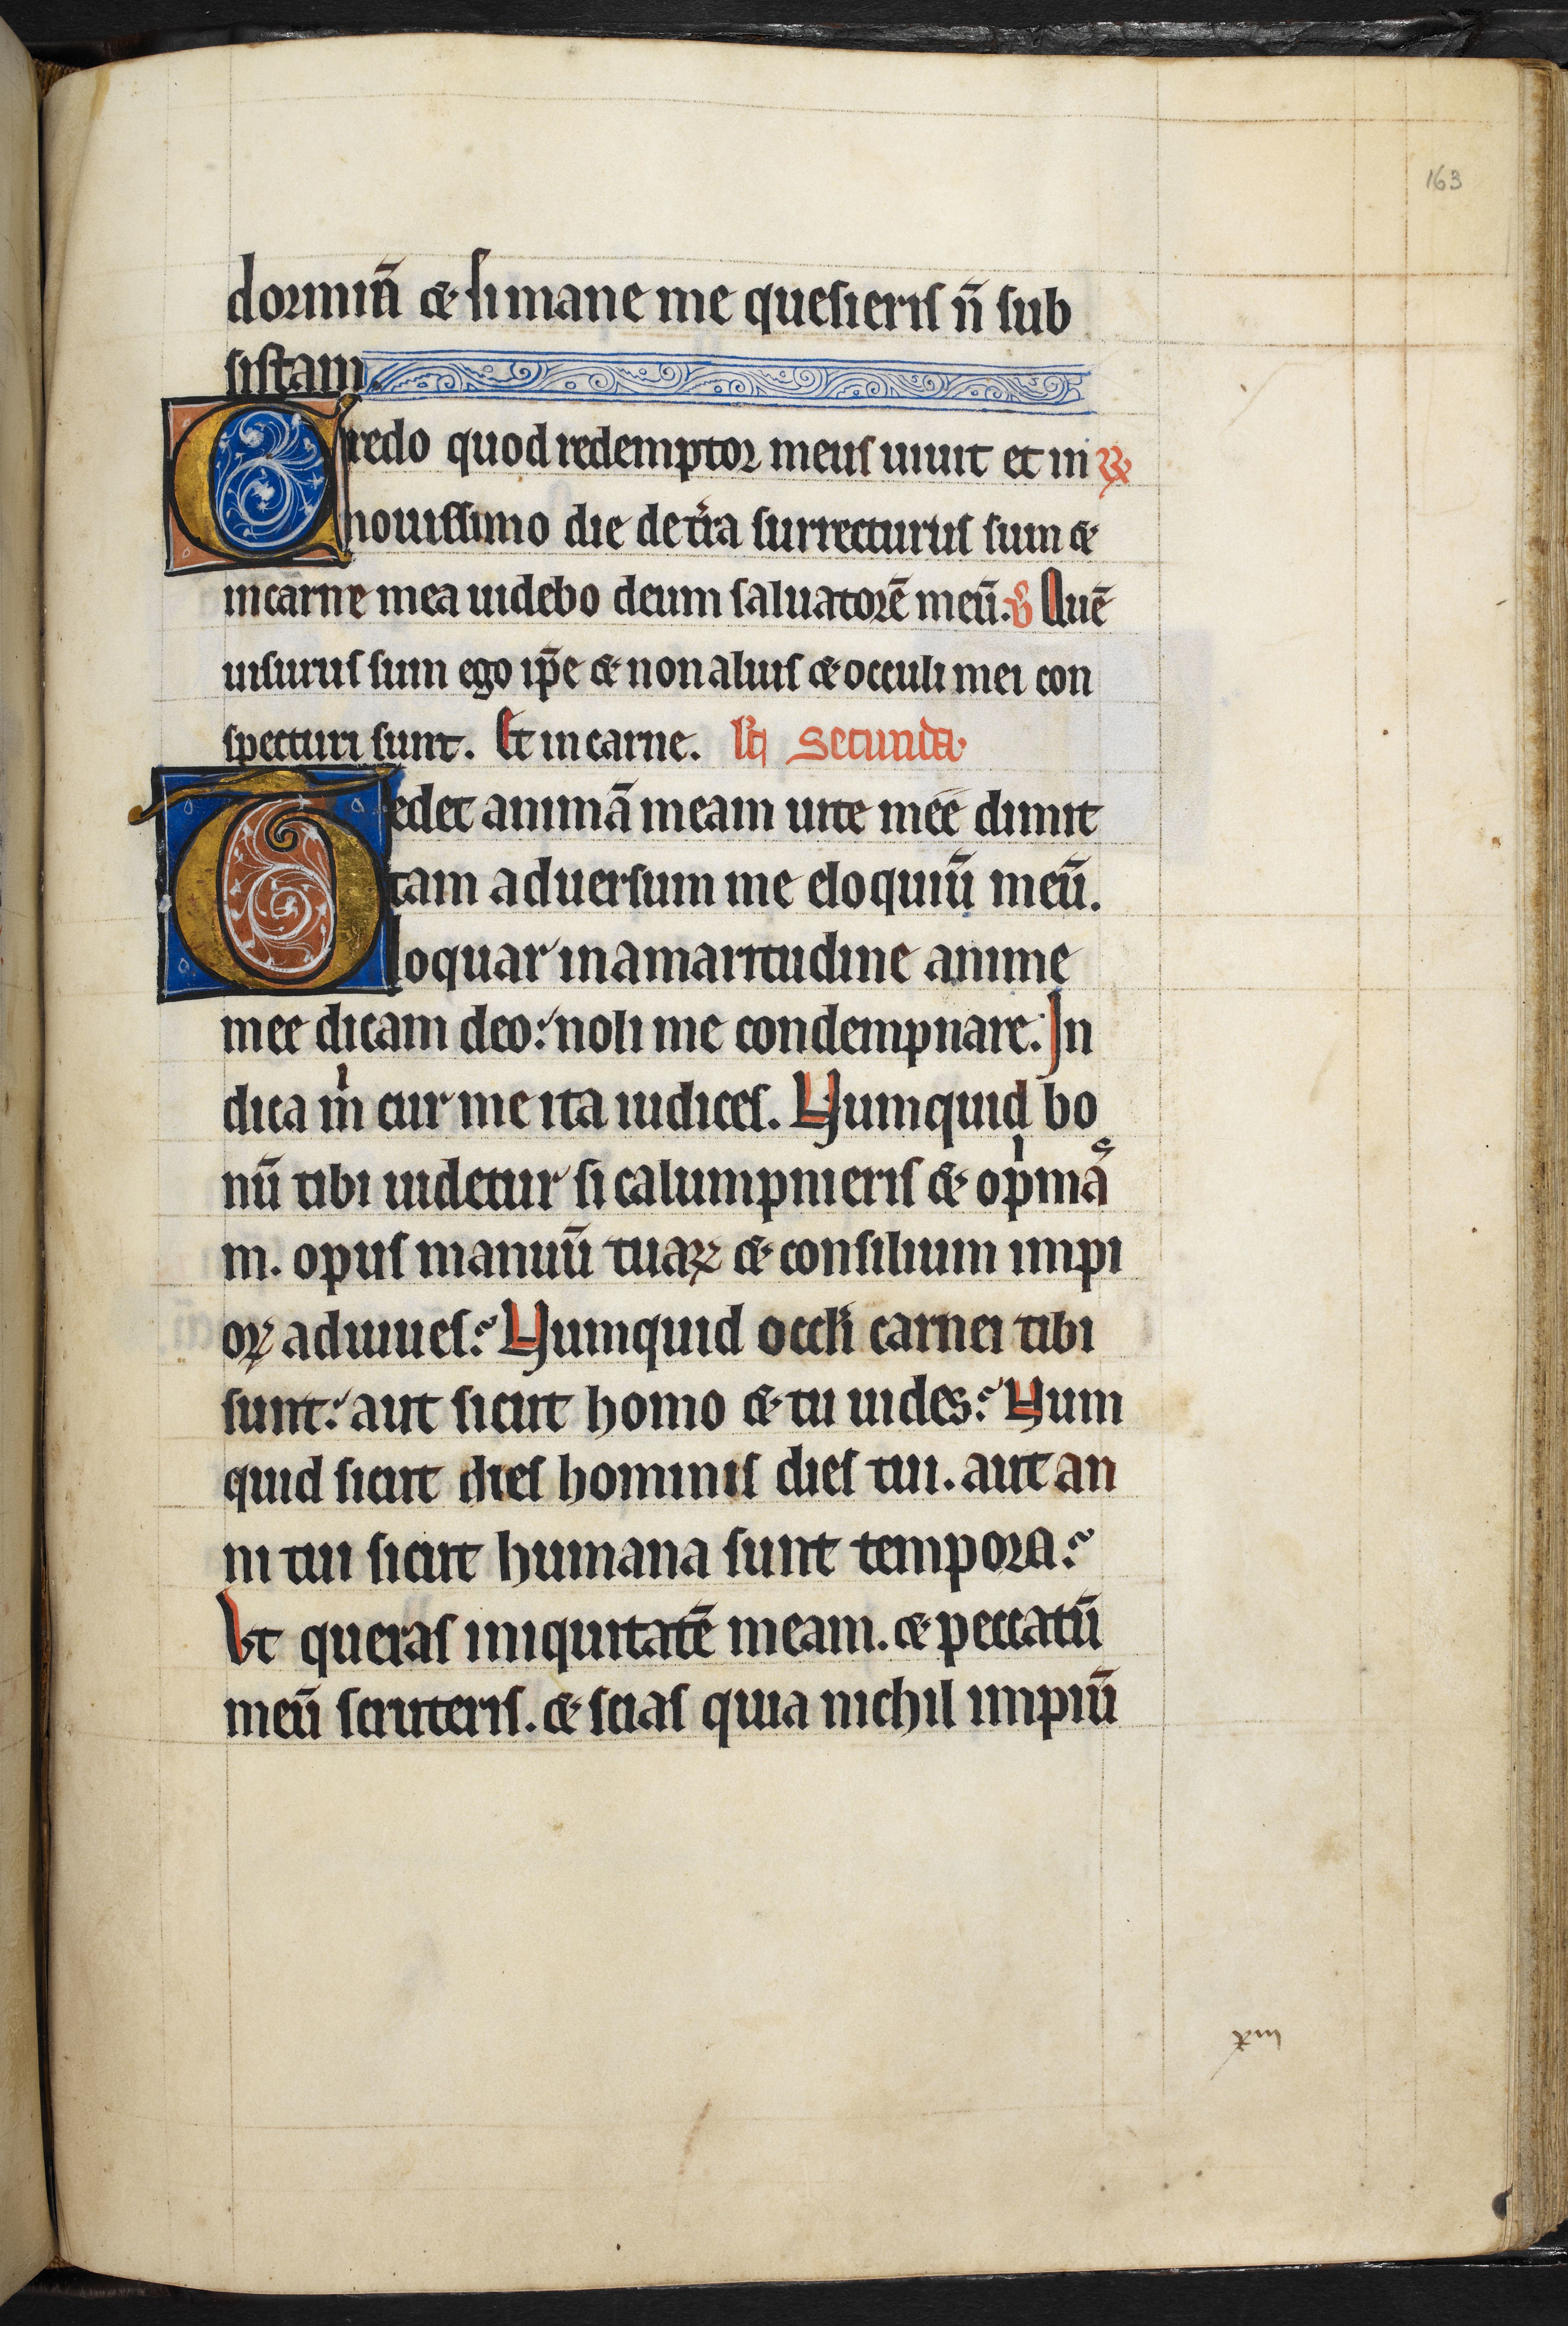 163
dormiā & si mane me quesieris n̄ sub
sistam.
Credo quod redemptor meus uiuit et in ℟
nouissimo die de tr̄a surrecturus sum &
in carne mea uidebo deum saluatorē meū. ℣ Quē
uisurus sum ego ip̄e & non alius & occuli mei con
specturi sunt. Et in carne. secunda
Tedet animā meam uite mee dimit
tam aduersum me eloquiū meū.
loquar in amaritudine anime
mee dicam deo: noli me condempnare. In
dica m̍ cur me ita iudices. Numquid bo
nū tibi uidetur si calumpnieris & op̍mas
m. opus manuū tuaꝝ & consilium impi
oꝝ adiuues? Numquid occłi carnei tibi
sunt: aut sicut homo & tu uides? Num
quid sicut dies hominis dies tui. aut an
ni tui sicut humana sunt tempora?
Vt queras iniquitatē meam. & peccatū
meū scruteris. & scias quia nichil impiū